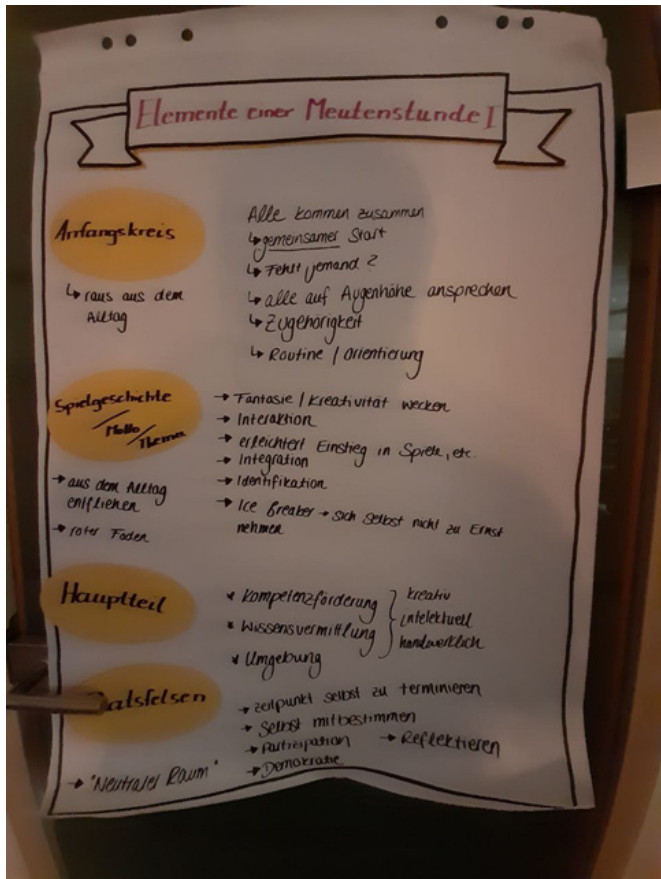 Elemente einer Meutenstunde I
Anfangskreis
↳ raus aus dem
Alltag
Alle kommen zusammen
↳ gemeinsamer Start
↳ Fehlt jemand?
↳ alle auf Augenhöhe ansprechen
↳ Zugehörigkeit
↳ Routine / Orientierung
Spielgeschichte
/ Motto
/ Thema
→ aus dem Alltag
entfliehen
→ roter Faden
→ Fantasie / Kreativität wecken
→ Interaktion
→ erleichtert Einstieg in Spiele, etc.
→ Integration
→ Identifikation
→ Ice Breaker → sich selbst nicht zu Ernst
nehmen
Hauptteil
* Kompetenzförderung
* Wissensvermittlung
* Umgebung
kreativ
intelektuell
handwerklich
atsfelsen
→ "Neutraler Raum"
→ Zeitpunkt selbst zu terminieren
→ Selbst mitbestimmen
→ Partizipation → Reflektieren
→ Demokratie